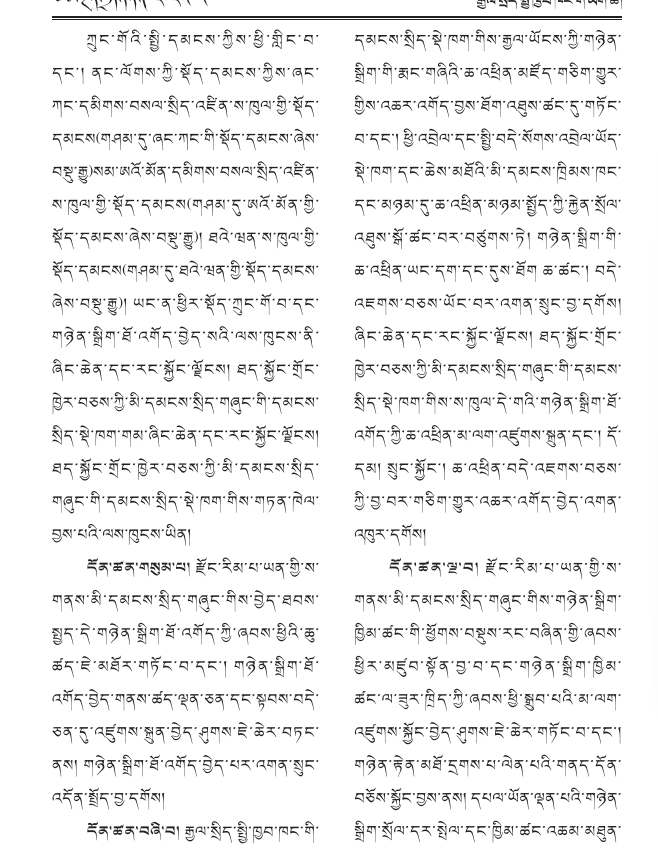 ཀྲུང་གོའི་སྤྱི་དམངས་ཀྱིས་ཕྱི་གླིང་བ་
དང༌། ནང་ལོགས་ཀྱི་སྡོད་དམངས་ཀྱིས་ཞང་
ཀང་དམིགས་བསལ་སྲིད་འཛིན་ས་ཁུལ་གྱི་སྡོད་
དམངས(གཤམ་དུ་ཞང་ཀང་གི་སྡོད་དམངས་ཞེས་
བསྡུ་རྒྱུ)སམ་ཨའོ་མོན་དམིགས་བསལ་སྲིད་འཛིན་
ས་ཁུལ་གྱི་སྡོད་དམངས(གཤམ་དུ་ཨའོ་མོན་གྱི་
སྡོད་དམངས་ཞེས་བསྡུ་རྒྱུ)། ཐའེ་ཝན་ས་ཁུལ་གྱི་
སྡོད་དམངས(གཤམ་དུ་ཐའེ་ཝན་གྱི་སྡོད་དམངས་
ཞེས་བསྡུ་རྒྱུ)། ཡང་ན་ཕྱིར་སྡོད་ཀྲུང་གོ་བ་དང་
གཉེན་སྒྲིག་ཐོ་འགོད་བྱེད་སའི་ལས་ཁུངས་ནི་
ཞིང་ཆེན་དང་རང་སྐྱོང་ལྗོངས། ཐད་སྐྱོང་གྲོང་
ཁྱེར་བཅས་ཀྱི་མི་དམངས་སྲིད་གཞུང་གི་དམངས་
སྲིད་སྡེ་ཁག་གམ་ཞིང་ཆེན་དང་རང་སྐྱོང་ལྗོངས།
ཐད་སྐྱོང་གྲོང་ཁྱེར་བཅས་ཀྱི་མི་དམངས་སྲིད་
གཞུང་གི་དམངས་སྲིད་སྡེ་ཁག་གིས་གཏན་ཁེལ་
བྱས་པའི་ལས་ཁུངས་ཡིན།
དོན་ཚན་གསུམ་པ། རྫོང་རིམ་པ་ཡན་གྱི་ས་
གནས་མི་དམངས་སྲིད་གཞུང་གིས་བྱེད་ཐབས་
སྤྱད་དེ་གཉེན་སྒྲིག་ཐོ་འགོད་ཀྱི་ཞབས་ཕྱིའི་ཆུ་
ཚད་ཇེ་མཐོར་གཏོང་བ་དང༌། གཉེན་སྒྲིག་ཐོ་
འགོད་བྱེད་གནས་ཚད་ལྡན་ཅན་དང་སྟབས་བདེ་
ཅན་དུ་འཛུགས་སྐྲུན་བྱེད་ཤུགས་ཇེ་ཆེར་བཏང་
ནས། གཉེན་སྒྲིག་ཐོ་འགོད་བྱེད་པར་འགན་སྲུང་
འདོན་སྤྲོད་བྱ་དགོས།
དོན་ཚན་བཞི་བ། རྒྱལ་སྲིད་སྤྱི་ཁྱབ་ཁང་གི་
དམངས་སྲིད་སྡེ་ཁག་གིས་རྒྱལ་ཡོངས་ཀྱི་གཉེན་
སྒྲིག་གི་རྨང་གཞིའི་ཆ་འཕྲིན་མཛོད་གཅིག་གྱུར་
གྱིས་འཆར་འགོད་བྱས་ཐོག་འཛུས་ཚང་དུ་གཏོང་
བ་དང༌། ཕྱི་འབྲེལ་དང་སྤྱི་བདེ་སོགས་འབྲེལ་ཡོད་
སྡེ་ཁག་དང་ཆེས་མཐོའི་མི་དམངས་ཁྲིམས་ཁང་
དང་མཉམ་དུ་ཆ་འཕྲིན་མཉམ་སྤྱོད་ཀྱི་རྐྱེན་སྲོལ་
འཐུས་སྒོ་ཚང་བར་བཙུགས་ཏེ། གཉེན་སྒྲིག་གི་
ཆ་འཕྲིན་ཡང་དག་དང་དུས་ཐོག ཆ་ཚང༌། བདེ་
འཇགས་བཅས་ཡོང་བར་འགན་སྲུང་བྱ་དགོས།
ཞིང་ཆེན་དང་རང་སྐྱོང་ལྗོངས། ཐད་སྐྱོང་གྲོང་
ཁྱེར་བཅས་ཀྱི་མི་དམངས་སྲིད་གཞུང་གི་དམངས་
སྲིད་སྡེ་ཁག་གིས་ས་ཁུལ་དེ་གའི་གཉེན་སྒྲིག་ཐོ་
འགོད་ཀྱི་ཆ་འཕྲིན་མ་ལག་འཛུགས་སྐྲུན་དང༌། དོ་
དམ། སྲུང་སྐྱོང༌། ཆ་འཕྲིན་བདེ་འཇགས་བཅས་
ཀྱི་བྱ་བར་གཅིག་གྱུར་འཆར་འགོད་བྱེད་འགན་
འཁུར་དགོས།
དོན་ཚན་ལྔ་བ། རྫོང་རིམ་པ་ཡན་གྱི་ས་
གནས་མི་དམངས་སྲིད་གཞུང་གིས་གཉེན་སྒྲིག་
ཁྱིམ་ཚང་གི་ཕྱོགས་བསྡུས་རང་བཞིན་གྱི་ཞབས་
ཕྱིར་མཛུབ་སྟོན་བྱ་བ་དང་གཉེན་སྒྲིག་ཁྱིམ་
ཚང་ལ་ཟུར་ཁྲིད་ཀྱི་ཞབས་ཕྱི་སྒྲུབ་པའི་མ་ལག་
འཛུགས་སྐྱོང་བྱེད་ཤུགས་ཇེ་ཆེར་གཏོང་བ་དང༌།
གཉེན་རྟེན་མཐོ་དྲགས་པ་ལེན་པའི་གནད་དོན་
བཅོས་སྐྱོང་བྱས་ནས། དཔལ་ཡོན་ལྡན་པའི་གཉེན་
སྒྲིག་སྲོལ་དར་སྤེལ་དང་ཁྱིམ་ཚང་འཆམ་མཐུན་